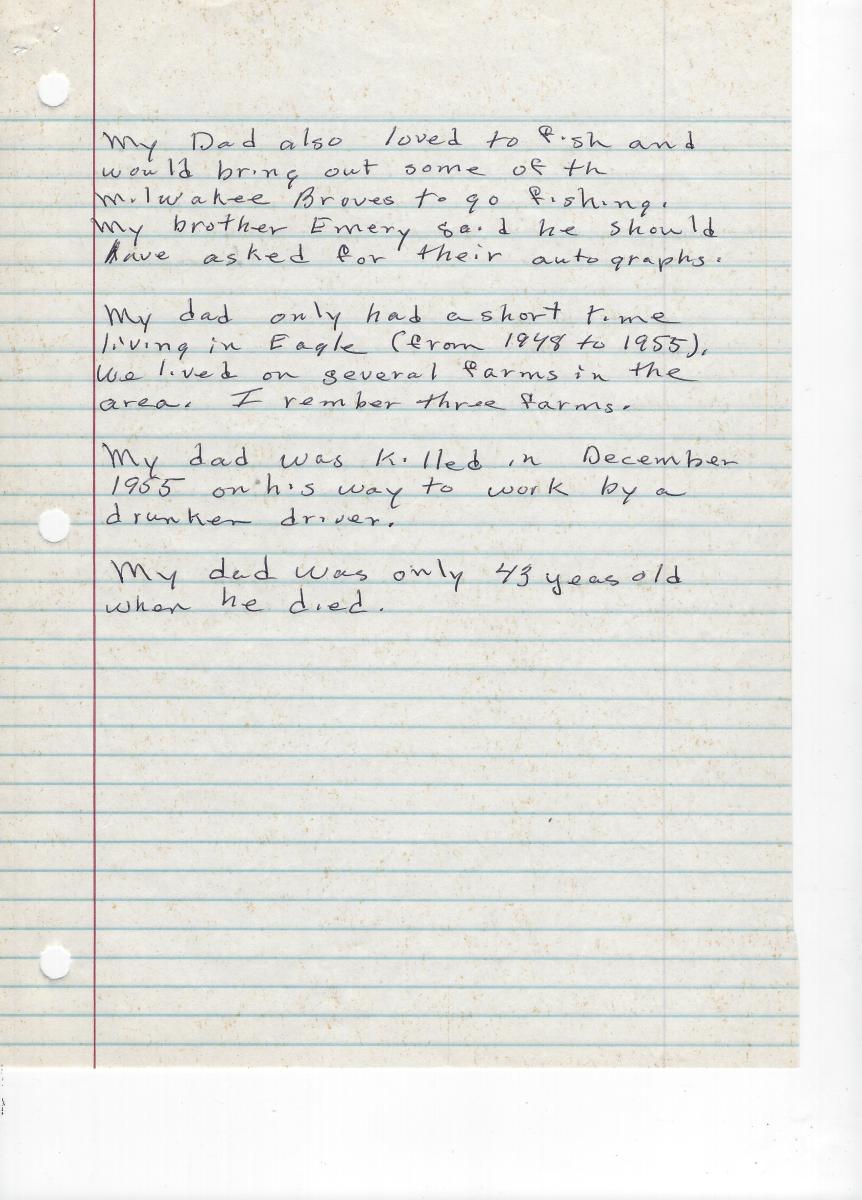 My Dad also loved to fish and
would bring out some of th
Milwakee Broves to go fishing.
My brother Emery said he should
have asked for their autographs.
My dad only had a short time
living in Eagle (from 1948 to 1955).
We lived on several farms in the
area. I rember three farms.
My dad was killed in December
1955 on his way to work by a
drunken driver.
My dad was only 43 yeas old
when he died.